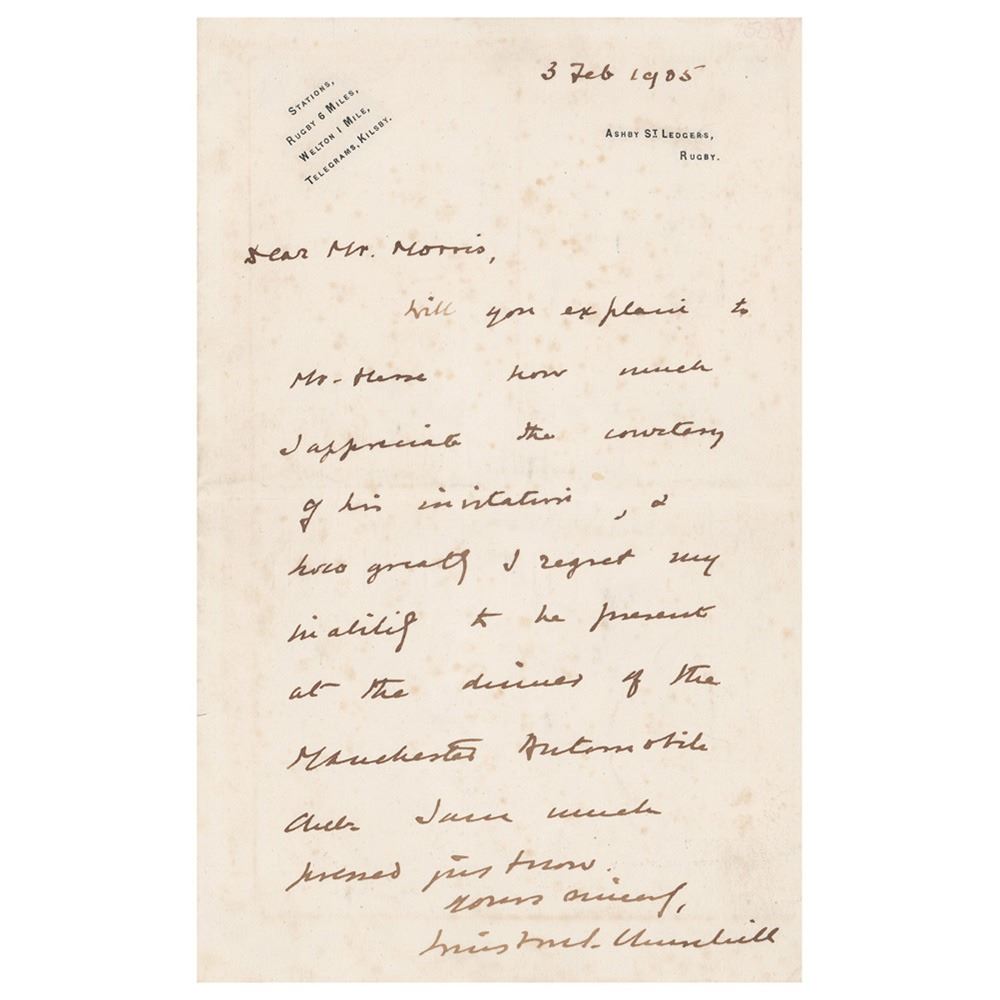 3 Feb 1905
STATIONS,
RUGBY 6 MILES,
WELTON 1 MILE,
TELEGRAMS, KILSBY.
ASHBY ST LEDGERS,
RUGBY.
Dear Mr. Morris,
Will you explain to
Mr. how much
I appreciate the courtesy
of his invitation, &
how greatly I regret my
inability to be present
at the dinner of the
Manchester Automobile
Club. I am much
pressed just now.
Yours sincerely,
Winston S. Churchill